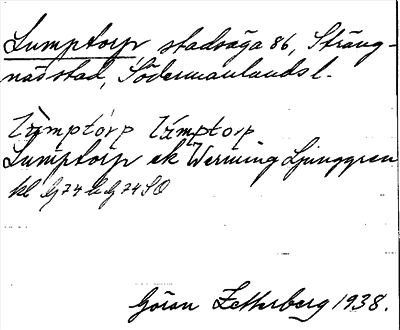 Lumptorp stadsäga 86, Sträng-
näs stad, Södermanlands l.
Lùmptórp Lúmptorp
Lumptorp ek Werning Ljunggren
bl G 74 G 74 SO
Göran Zetterberg 1938.